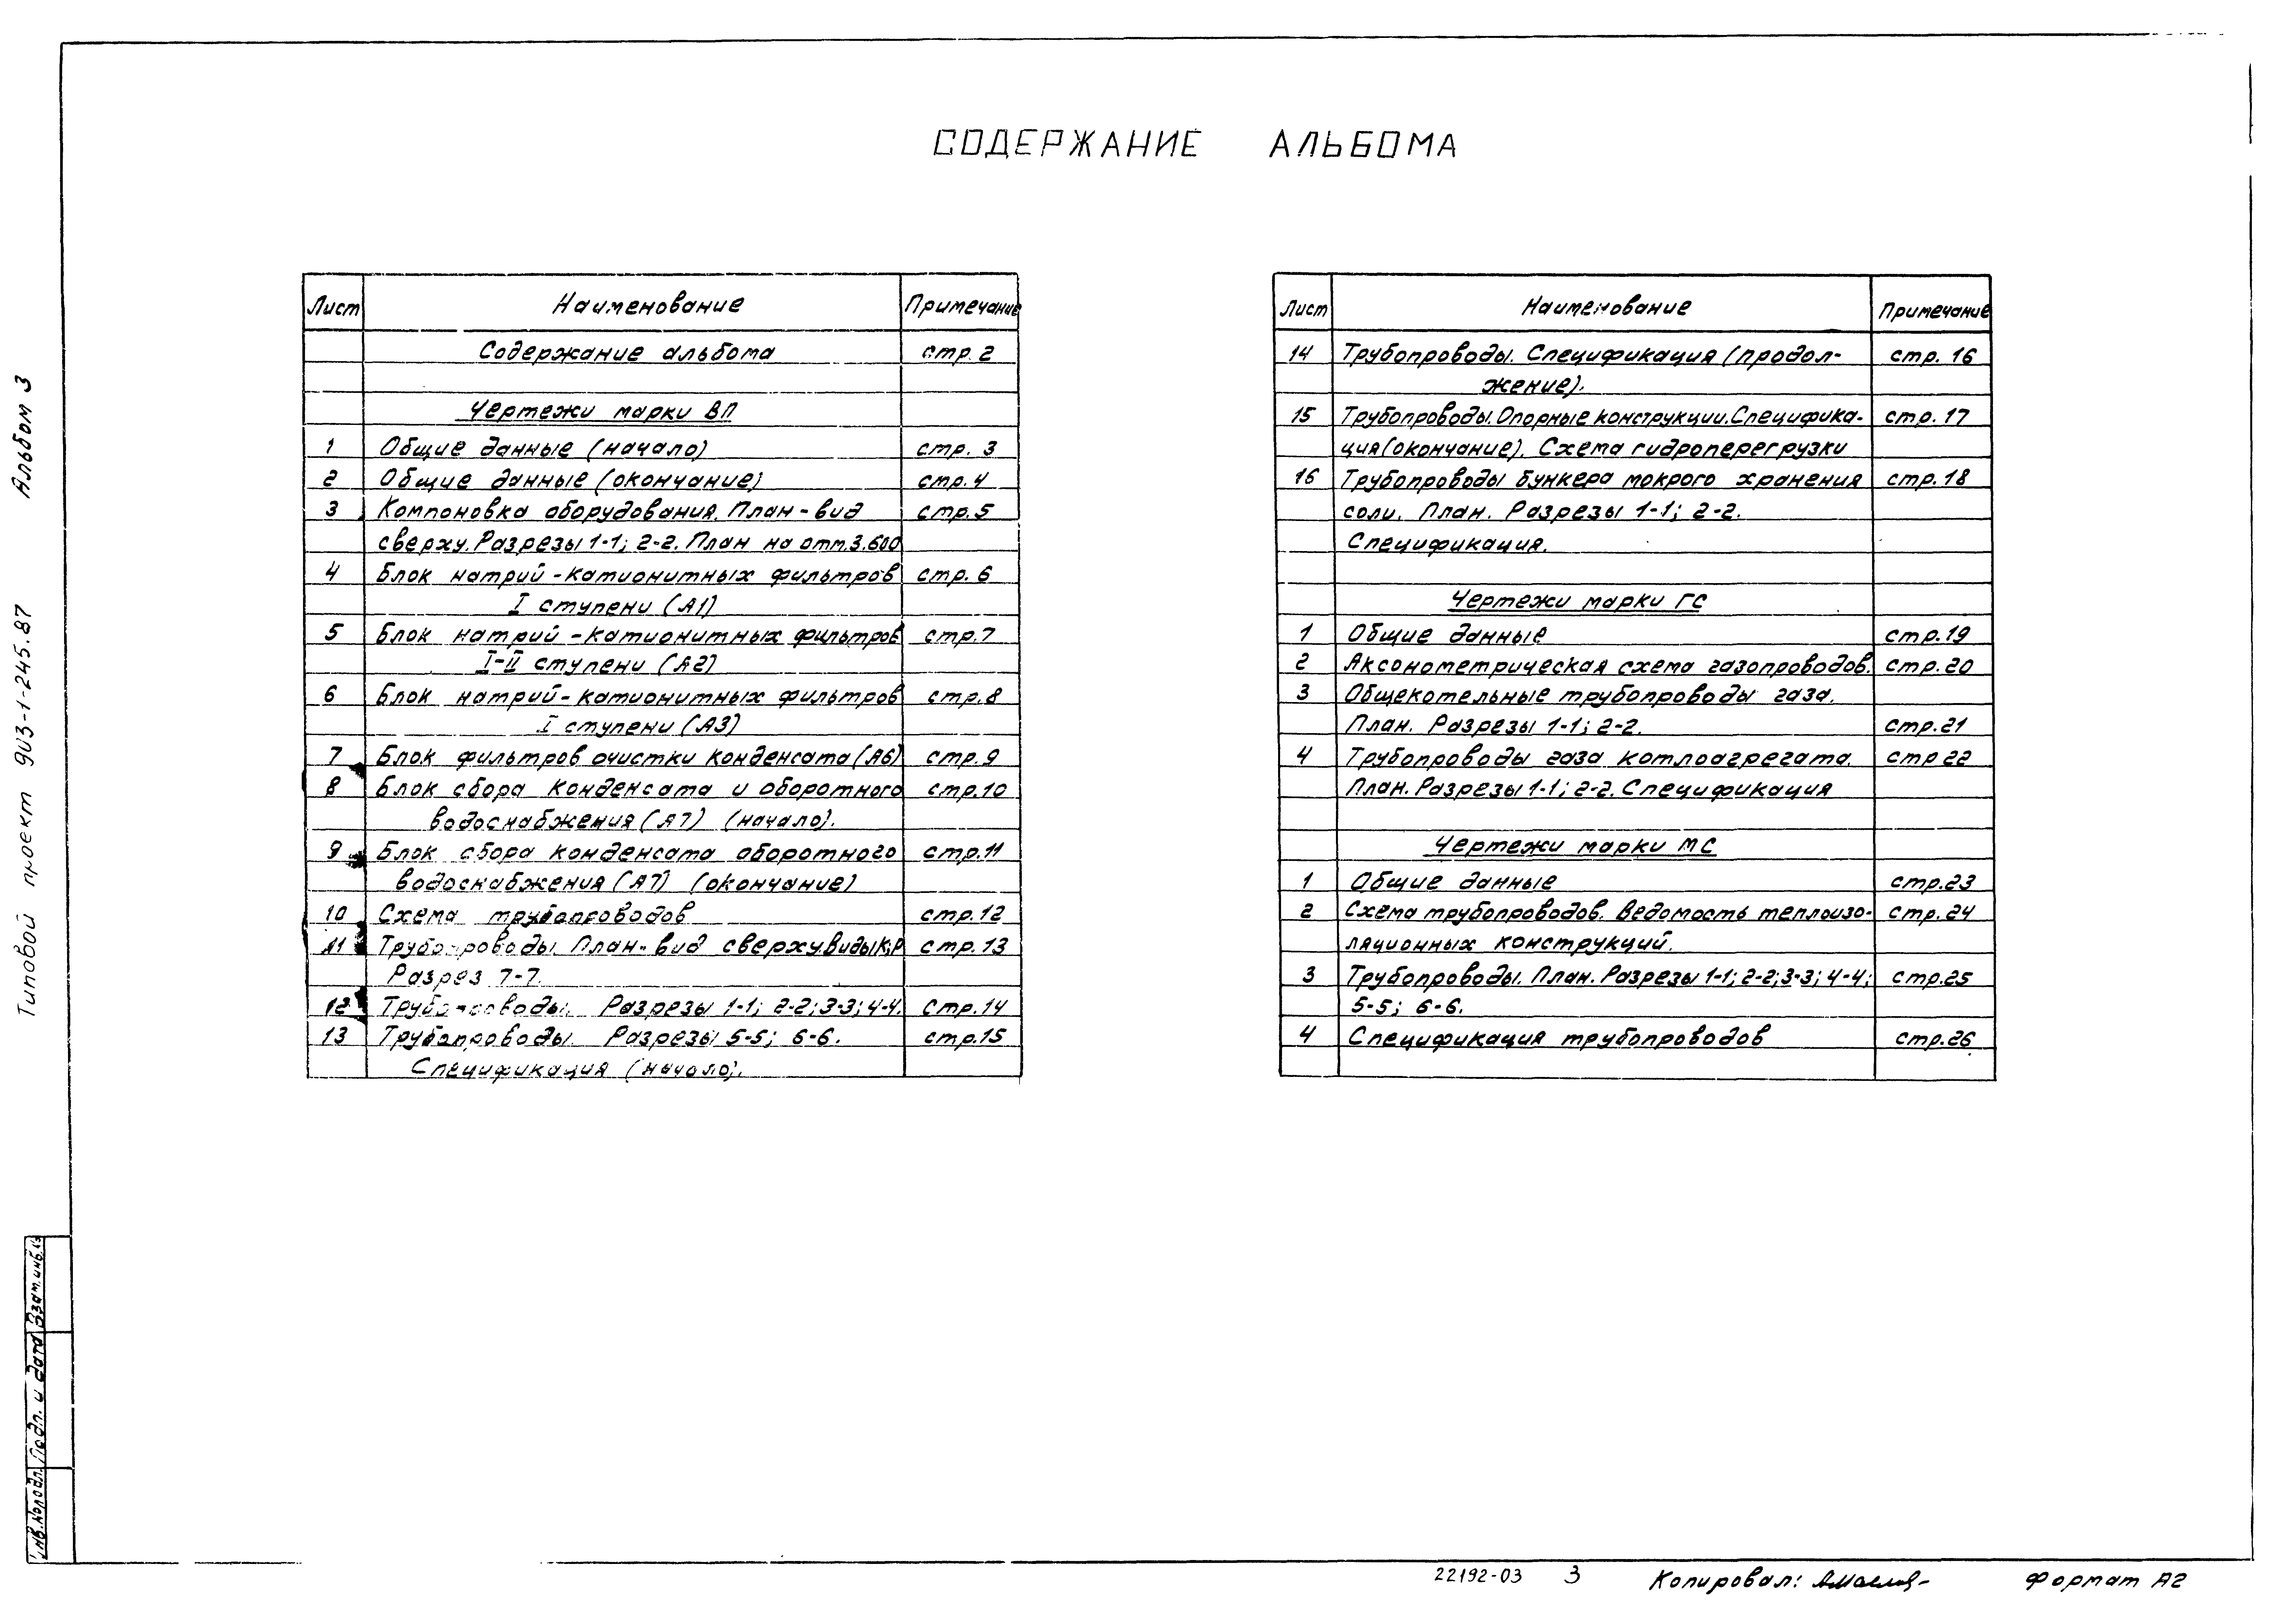 СОДЕРЖАНИЕ АЛЬБОМА
Лист Наименование Примечание
Содержание альбома стр. 2
Чертежи марки ВП
1 Общие данные (начало) стр. 3
2 Общие данные (окончание) стр. 4
3 Компоновка оборудования. План-вид стр. 5
сверху. Разрезы 1-1; 2-2. План на отм. 3.600
4 Блок натрий-катионитных фильтров стр. 6
I ступени (А1)
5 Блок натрий-катионитных фильтров стр. 7
I-II ступени (А2)
6 Блок натрий-катионитных фильтров стр. 8
I ступени (А3)
7 Блок фильтров очистки конденсата (А6) стр. 9
8 Блок сбора конденсата и оборотного стр. 10
водоснабжения (А7) (начало).
9 Блок сбора конденсата оборотного стр. 11
водоснабжения (А7) (окончание)
10 Схема трубопроводов стр. 12
11 Трубопроводы. План-вид сверху. Виды К; Р стр. 13
Разрез 7-7.
12 Трубопроводы. Разрезы 1-1; 2-2; 3-3; 4-4. стр. 14
13 Трубопроводы. Разрезы 5-5; 6-6. стр. 15
Спецификация (начало).
Лист Наименование Примечание
14 Трубопроводы. Спецификация (продол- стр. 16
жение).
15 Трубопроводы. Опорные конструкции. Специфика- стр. 17
ция (окончание). Схема гидроперегрузки
16 Трубопроводы бункера мокрого хранения стр. 18
соли. План. Разрезы 1-1; 2-2.
Спецификация.
Чертежи марки ГС
1 Общие данные стр. 19
2 Аксонометрическая схема газопроводов. стр. 20
3 Общекотельные трубопроводы газа.
План. Разрезы 1-1; 2-2. стр. 21
4 Трубопроводы газа котлоагрегата. стр 22
План. Разрезы 1-1; 2-2. Спецификация
Чертежи марки МС
1 Общие данные стр. 23
2 Схема трубопроводов. Ведомость теплоизо- стр. 24
ляционных конструкций.
3 Трубопроводы. План. Разрезы 1-1; 2-2; 3-3; 4-4; стр. 25
5-5; 6-6.
4 Спецификация трубопроводов стр. 26
Типовой проект 903-1-245.87 Альбом 3
Инв.№подл. Подп. и дата Взам.инв.№
22192-03 3 Копировал: Формат А2